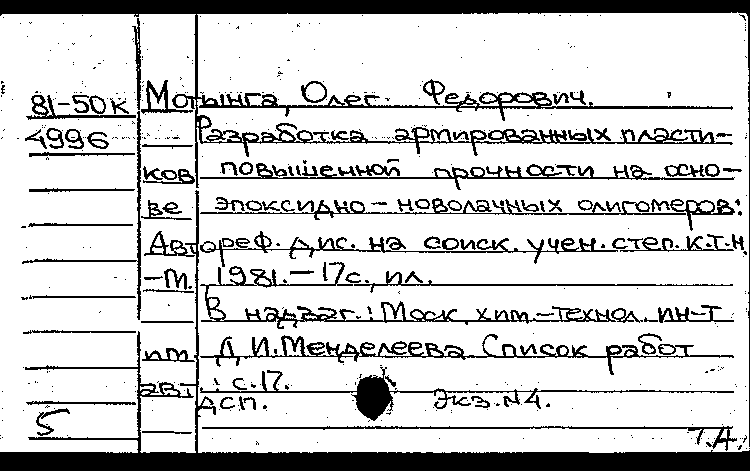 81-50к Мотынга, Олег Федорович.
4996 Разработка армированных пласти-
ков повышенной прочности на осно-
ве эпоксидно-новолачных олигомеров:
Автореф. дис. на соиск. учен. степ. к.т.н.
-М., 1981.-17с., ил.
В надзаг.: Моск. хим.-технол. ин-т
им. Д.И.Менделеева. Список работ
авт.: с.17.
ДСП. Экз.N4.
5